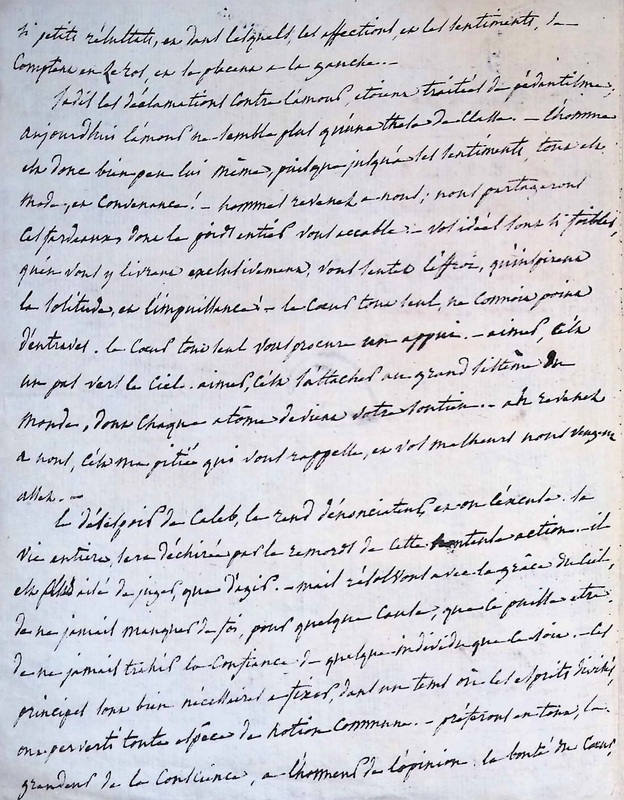 si petits résultats, en dans lesquels, les affections, en les sentiments, se
comptene en zeros, en se placene a la gauche. —
Jadis les déclamations contre l'amour, étoiens traitées de pédantisme,
aujourdhui l'amour ne semble plus qu'une these de classe. — l'homme
est donc bien peu lui même, puisque jusqu'a ses sentiments, tout est
mode, en convenance! — hommes revenez a nous; nous partagerons
ces fardeaux, dont le poids entier vous accable. — vos idéés sont si foibles,
qu'en vous y livrant exclusivement, vous sentez l'effroi, qu'inspirent
la solitude, en l'impuissance! — le cœur tout seul, ne connoit point
d'entraves. le cœur tout seul vous procure un appui. — aimer, c'est
un pas vers le ciel. aimer, c'est s'attacher au grand sistème du
monde, dont chaque atôme devient votre soutien. — ah revenez
a nous, c'est ma pitiée qui vous rappelle, en vos malheurs nous vengent
assez. —
le désespoir de Caleb, le rend dénonciateur, en on l'excuse. sa
vie entiere, sera déchirée par le remors de cette honteuse action. — il
est plus aisé de juger, que d'agir. — mais résolvons avec la grâce du ciel,
de ne jamais manquer de foi, pour quelque cause, que ce puisse etre
de ne jamais trahir la confiance de quelque individu que ce soit. — ces
principes sont bien nécessaires a fixer, dans un tems où les esprits divisés,
ont perverti toute espêce de notion commune. — préferons en tout, la
grandeur de la conscience, a l'honneur de l'opinion. la bonté du cœur,